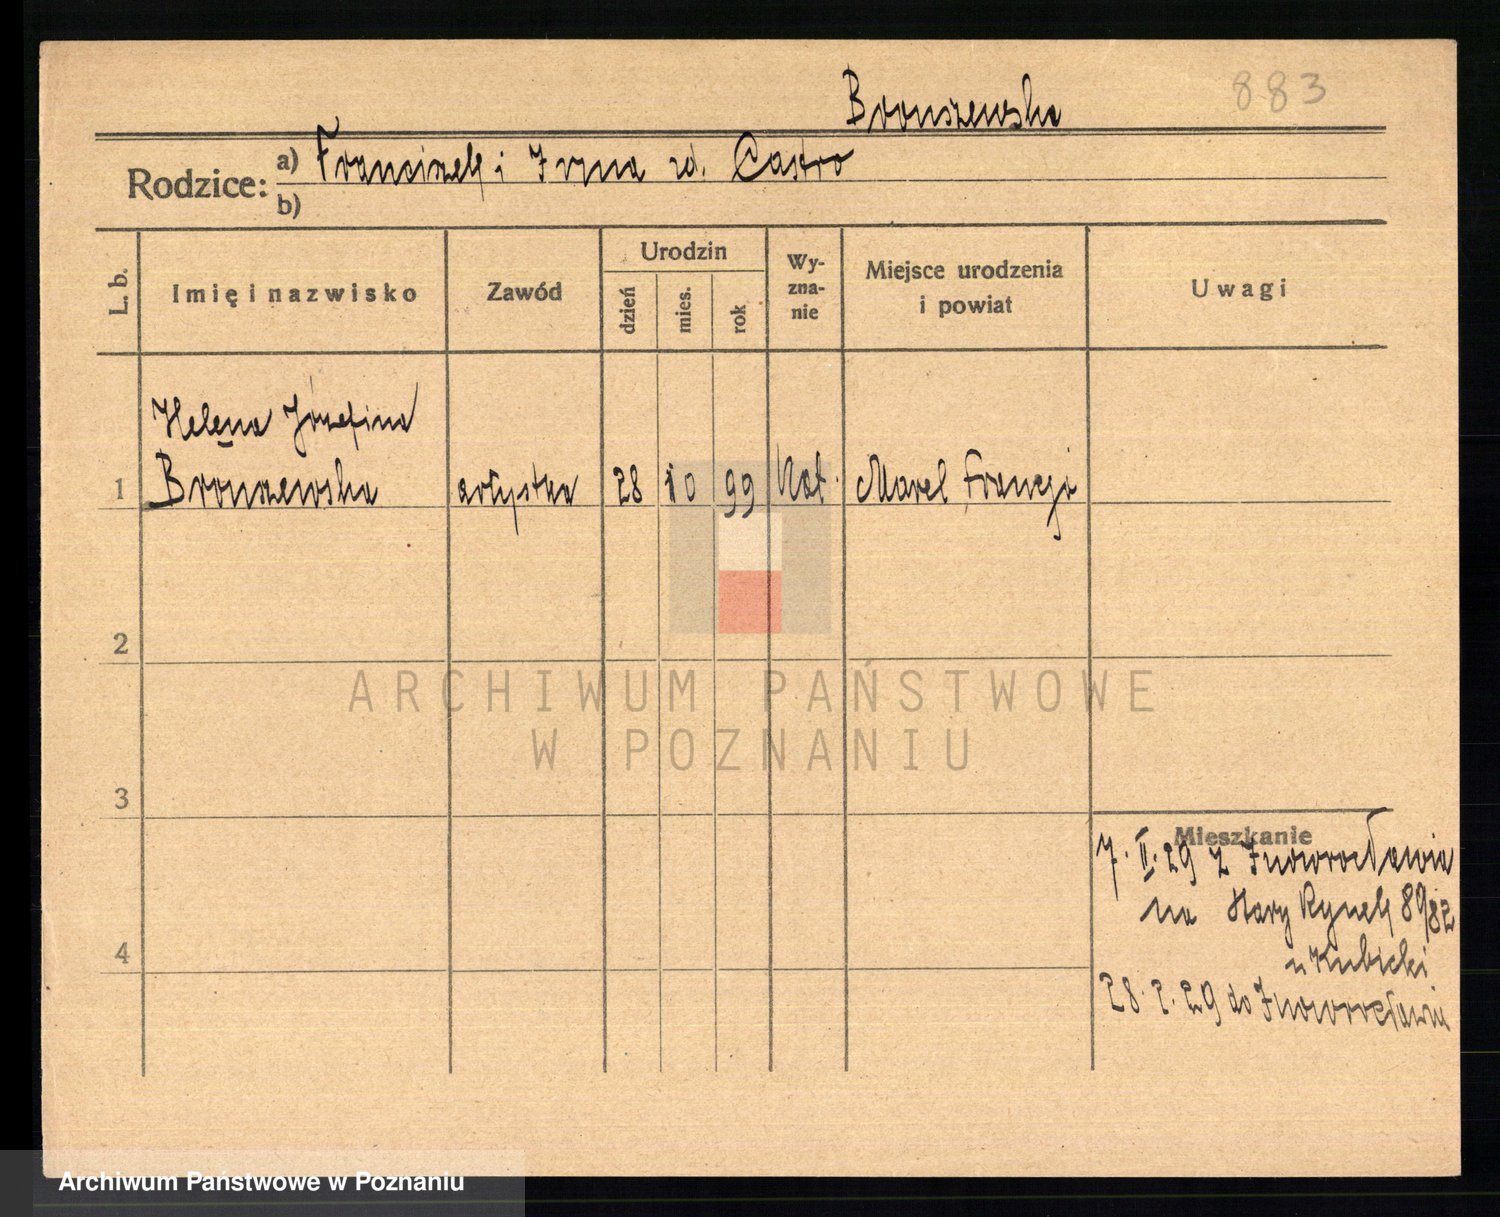 883
Bronszewska
Rodzice: a) Franciszek i Iryna zd. Castro
b)
L. b. Imię i nazwisko Zawód Urodzin dzień mies. rok Wy-zna-nie Miejsce urodzenia i powiat Uwagi
Helena Józefina
1 Bronszewska artystka 28 10 99 Kat. Marel Francja
2
3
Mieszkanie
7. II. 29 z Inowrocławia
na Stary Rynek 89/82
u Kubicki
4
28. 2. 29 do Inowrocławia
ARCHIWUM PAŃSTWOWE
W POZNANIU
Archiwum Państwowe w Poznaniu